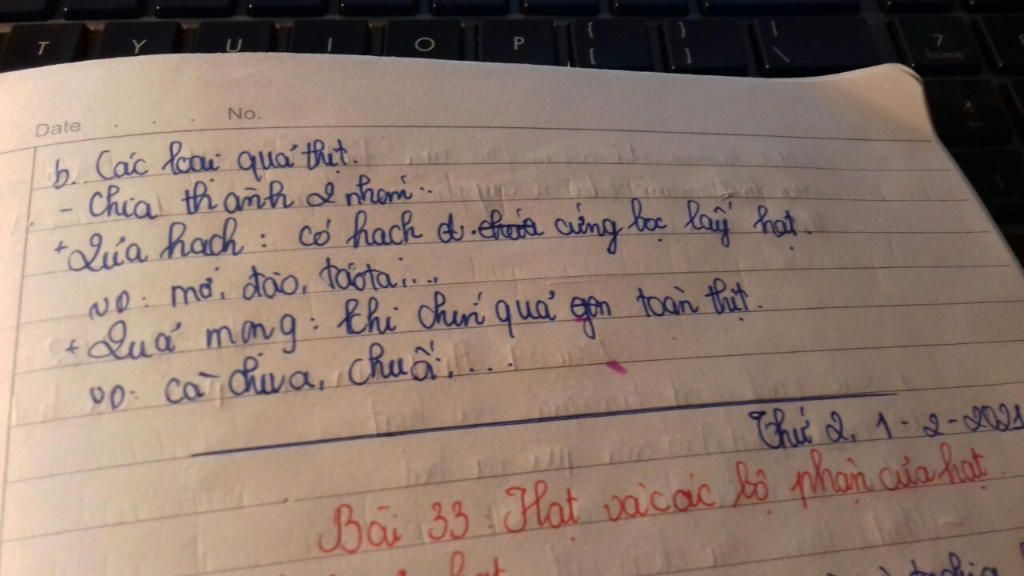 T Y U I O P { [ } ] | \ 7 4
Date . . . No.
b. Các loại quả thịt.
- Chia thành 2 nhóm:
+ Quả hạch: có hạch d. chứa cứng bọc lấy hạt.
VD: mơ, đào, táo ta,...
+ Quả mọng: khi chín quả gồm toàn thịt.
VD: cà chua, chuối,...
Thứ 2, 1-2-2021
Bài 33: Hạt và các bộ phận của hạt
hạt